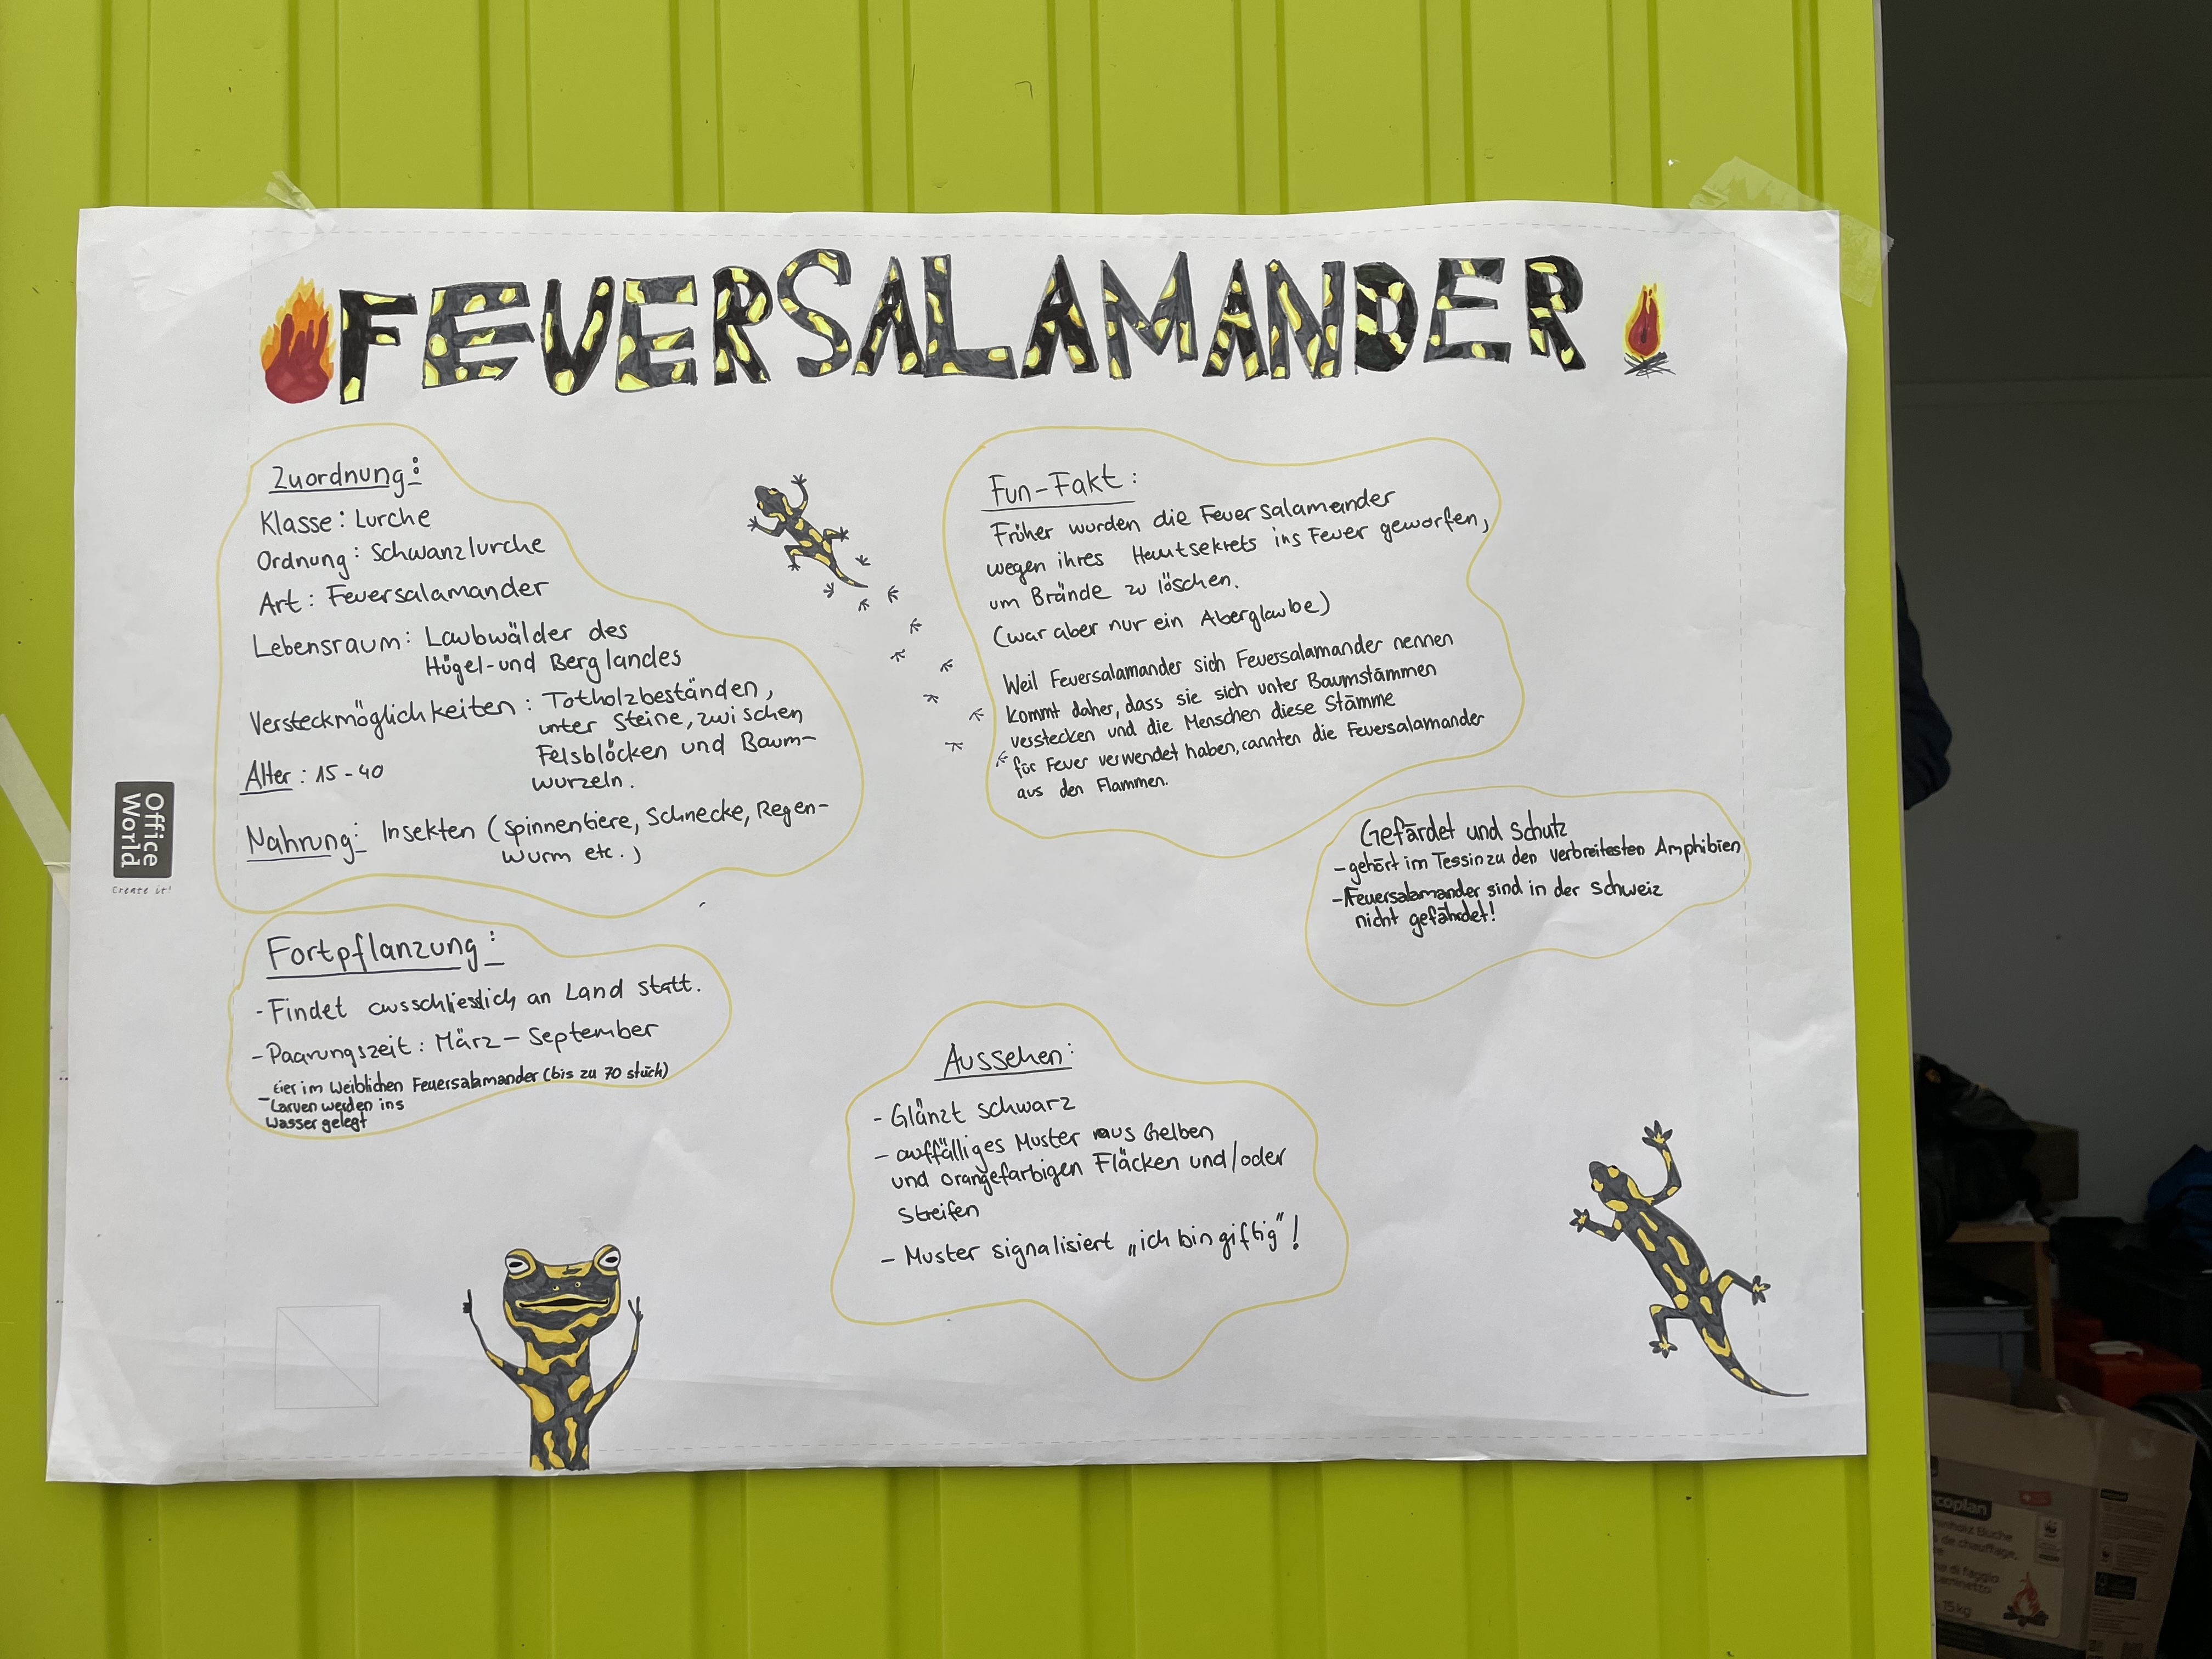 FEUERSALAMANDER
Zuordnung:
Klasse: Lurche
Ordnung: Schwanzlurche
Art: Feuersalamander
Lebensraum: Laubwälder des
Hügel-und Berglandes
Versteckmöglichkeiten: Totholzbeständen,
unter Steine, zwischen
Felsblöcken und Baum-
wurzeln.
Alter: 15-40
Nahrung: Insekten (Spinnentiere, Schnecke, Regen-
wurm etc.)
Fun-Fakt:
Früher wurden die Feuersalamander
wegen ihres Hautsekrets ins Feuer geworfen,
um Brände zu löschen.
(war aber nur ein Aberglaube)
Weil Feuersalamander sich Feuersalamander nennen
kommt daher, dass sie sich unter Baumstämmen
verstecken und die Menschen diese Stämme
für Feuer verwendet haben, rannten die Feuersalamander
aus den Flammen.
Gefärdet und Schutz
- gehört im Tessin zu den verbreitesten Amphibien
- Feuersalamander sind in der Schweiz
nicht gefährdet!
Office
World
Create it!
Fortpflanzung:
- Findet ausschliesslich an Land statt.
- Paarungszeit: März - September
- Eier im Weiblichen Feuersalamander (bis zu 70 stück)
- Larven werden ins
Wasser gelegt
Aussehen:
- Glänzt schwarz
- auffälliges Muster aus Gelben
und orangefarbigen Fläcken und/oder
Streifen
- Muster signalisiert „ich bin giftig"!
coplan
Buche
de chauffage,
di faggio
15 kg